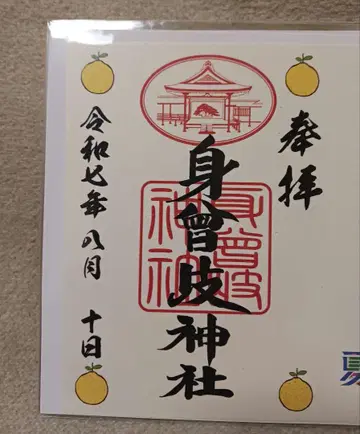 奉拝
身曾岐神社
身曾岐神社
令和七年八月十日
夏